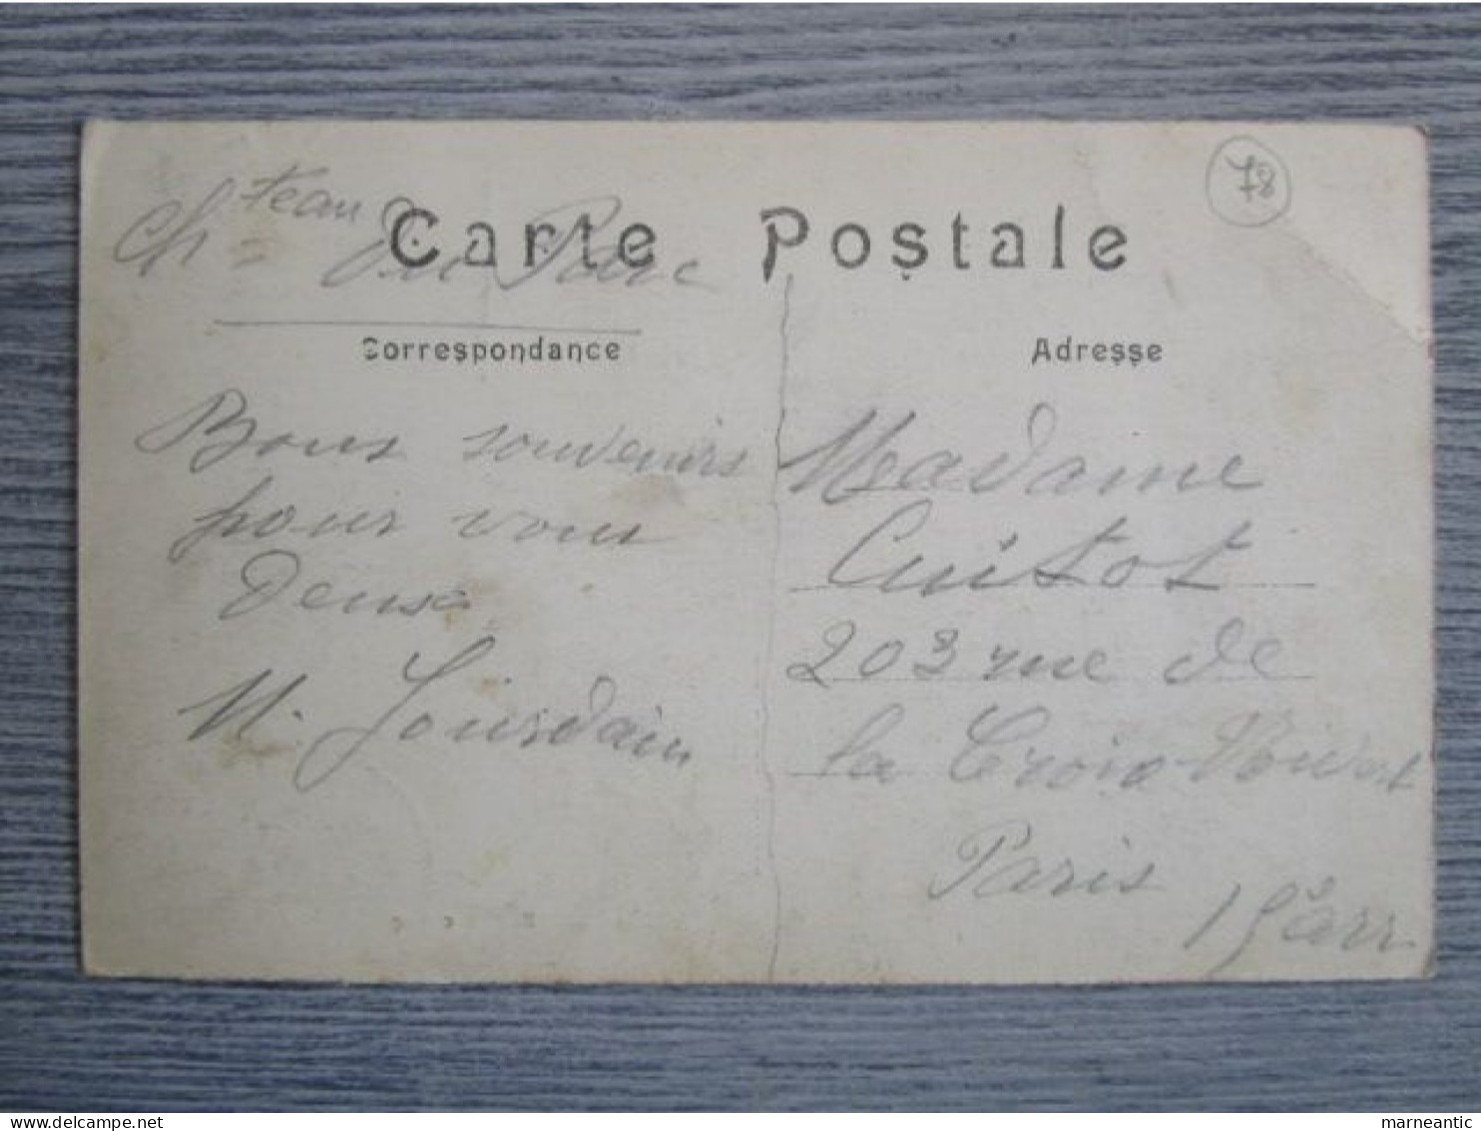 78
Chteau Du Parc
Carte Postale
Correspondance
Adresse
Bons souvenirs
pour vous
Deux
M. Jourdain
Madame
Cuitot
203 rue de
la Croix Nivert
Paris
15e arr
marneantic